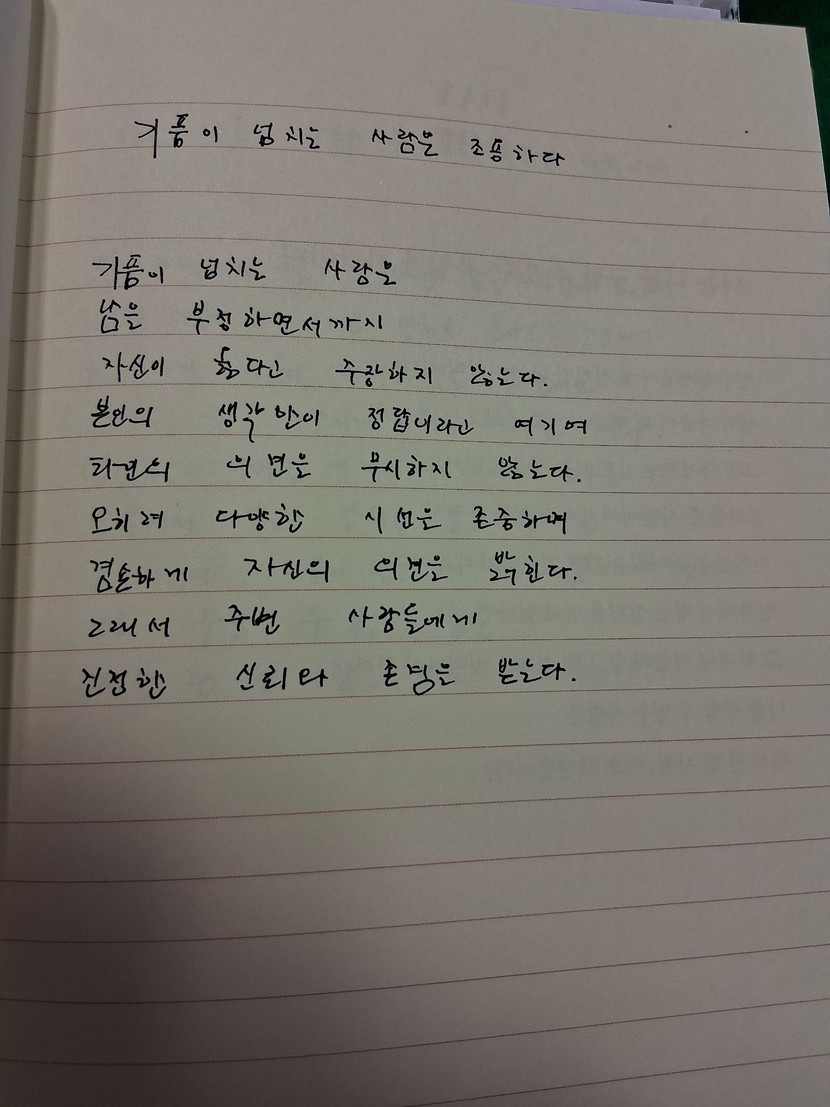 기품이 넘치는 사람은 조용하다
기품이 넘치는 사람은
남을 부정하면서까지
자신이 옳다고 주장하지 않는다.
본인의 생각만이 정답이라고 여기여
타인의 의견을 무시하지 않는다.
오히려 다양한 시선을 존중하며
겸손하게 자신의 의견을 밝힌다.
그래서 주변 사람들에게
진정한 신뢰와 존경을 받는다.